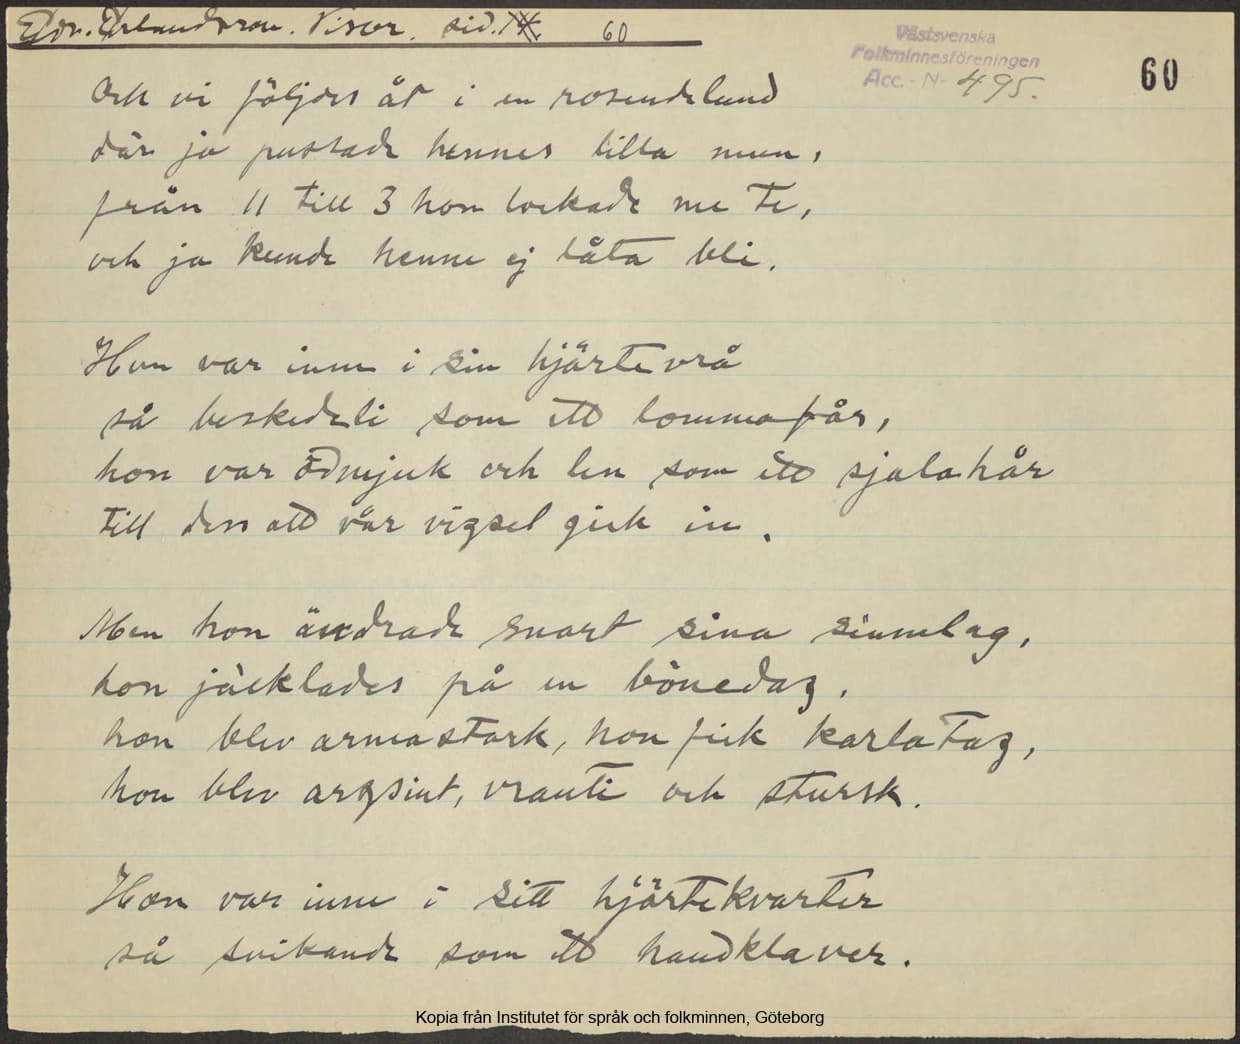 Edv. Erlandsson. Visor. sid. 60
Västsvenska
Folkminnesföreningen
Acc. N- 495.
60
Och vi följdes åt i en rosendelund
där ja pustade hennes lilla mun,
från 11 till 3 hon lockade me te,
och ja kunde henne ej låta bli.
Hon var inne i sin hjärtevrå
så beskedeli som ett lommafår,
hon var ödmjuk och len som ett sjalahår
till dess att vår vigsel gick in.
Men hon ändrade snart sina sinnelag,
hon jäcklades på en bönedag.
hon blev armastark, hon fick karlatag,
hon blev argsint, vranti och stursk.
Hon var inne i sitt hjärtekvarter
så svikande som ett handklaver.
Kopia från Institutet för språk och folkminnen, Göteborg